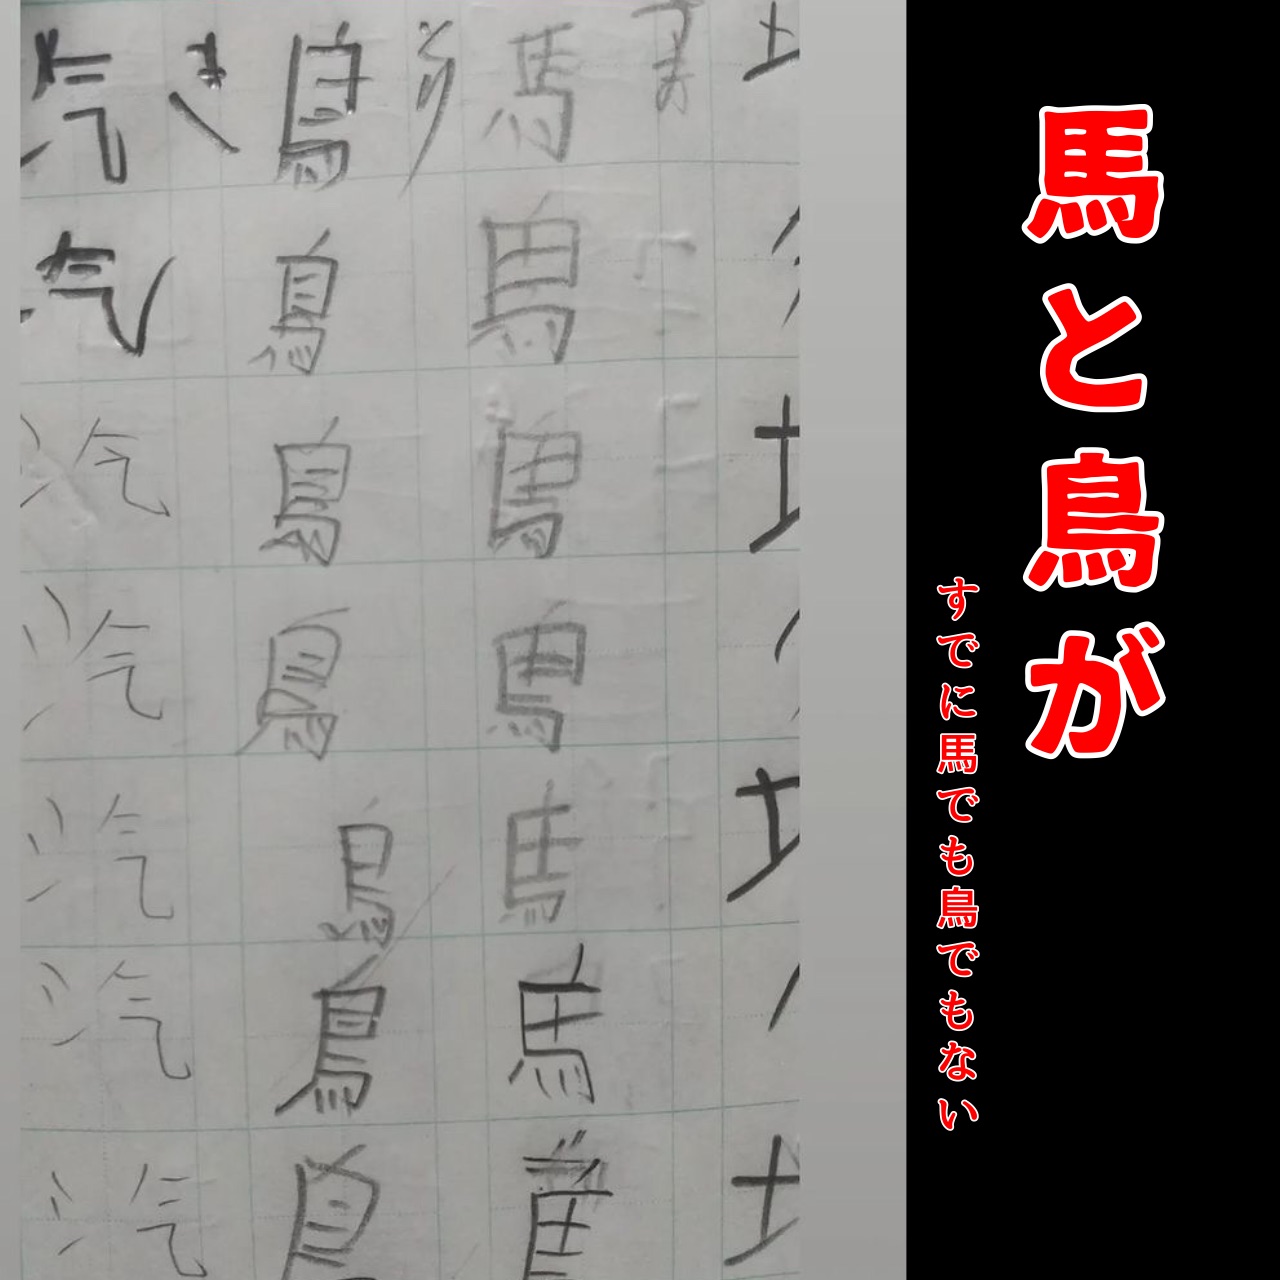 馬と鳥が
すでに馬でも鳥でもない
馬馬馬馬馬馬
鳥鳥鳥鳥鳥鳥鳥
き
汽汽汽汽汽汽汽